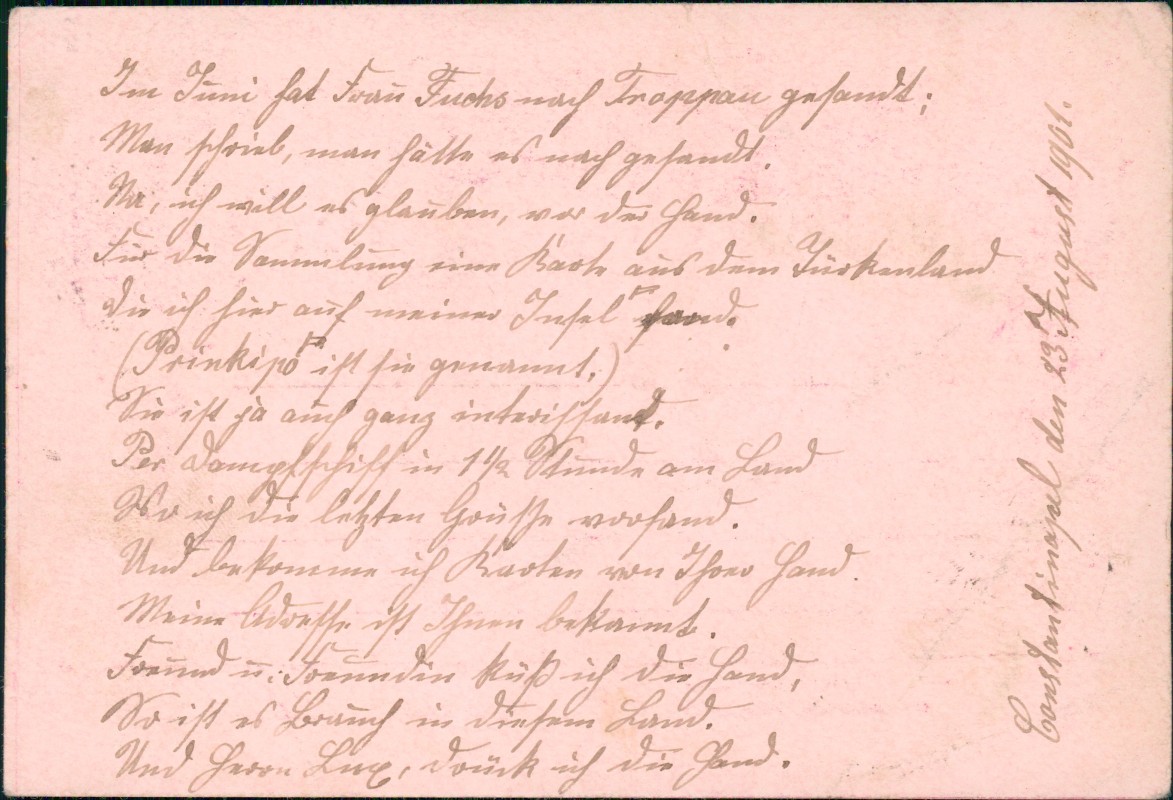 Im Juni hat Frau Fuchs nach Troppau gesandt;
Man schrieb, man hätte es nach gesandt.
Na, ich will es glauben, vor der Hand.
Für die Sammlung eine Karte aus dem Türkenland
Die ich hier auf meiner Insel fand.
(Prinkipo ist sie genannt,)
Sie ist ja auch ganz interissant.
Per Dampfschiff in 1 1/2 Stunde am Land
Wo ich die letzten Grüsse vorfand.
Und bekomme ich Karten von Ihrer Hand.
Meine Adresse ist Ihnen bekannt.
Freund u. Freundin küß ich die Hand,
So ist es Brauch in diesem Land.
Und Herrn Lux, drück ich die Hand.
Constantinopel den 23 August 1901.